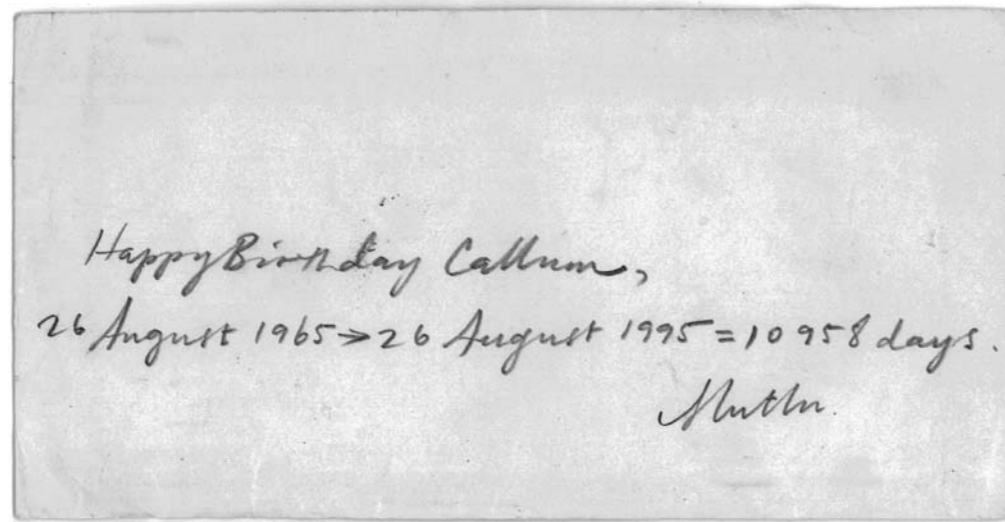 Happy Birthday Callum,
26 August 1965 > 26 August 1995 = 10 958 days.
Muthu.